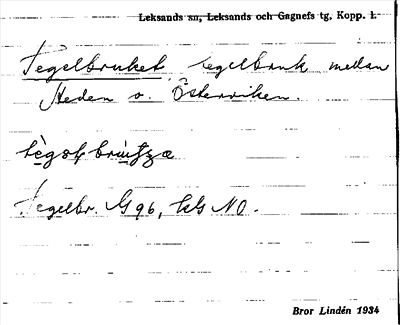 Leksands sn, Leksands och Gagnefs tg, Kopp. l.
Tegelbruket, tegelbruk mellan
Heden o. Österviken.
Tegelbr. G 96, kls NO.
Bror Lindén 1934